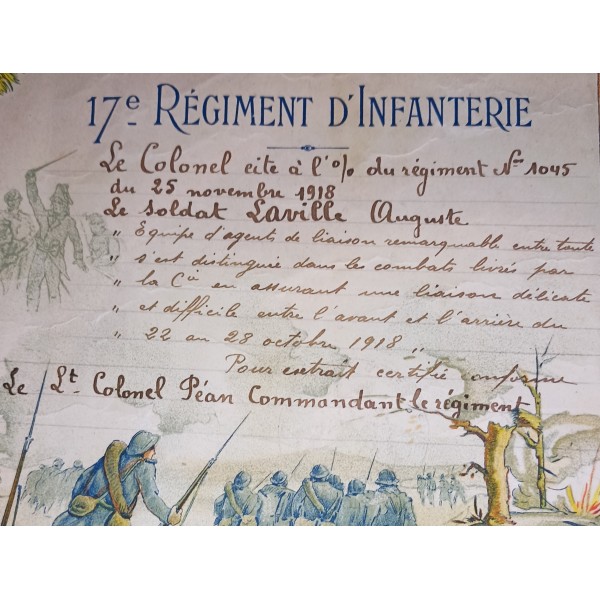 17e RÉGIMENT D'INFANTERIE
Le Colonel cite à l'o/o du régiment No 1045
du 25 novembre 1918
Le soldat Laville Auguste
" Equipe d'agents de liaison remarquable entre toute
" s'est distinguée dans les combats livrés par
" la Cie en assurant une liaison délicate
" et difficile entre l'avant et l'arrière du
" 22 au 28 octobre 1918 "
Pour extrait certifié conforme
Le Lt Colonel Péan Commandant le régiment